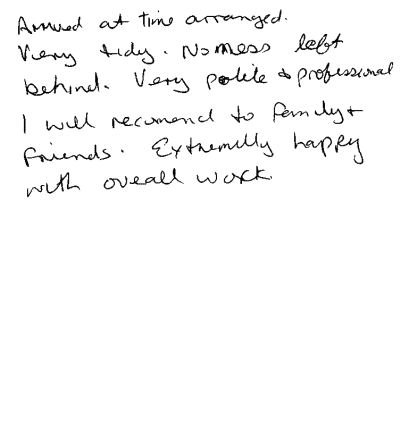 Arrived at time arranged.
Very tidy. No mess left
behind. Very polite & professional
I will recomend to family +
friends. Extremelly happy
with overall work.